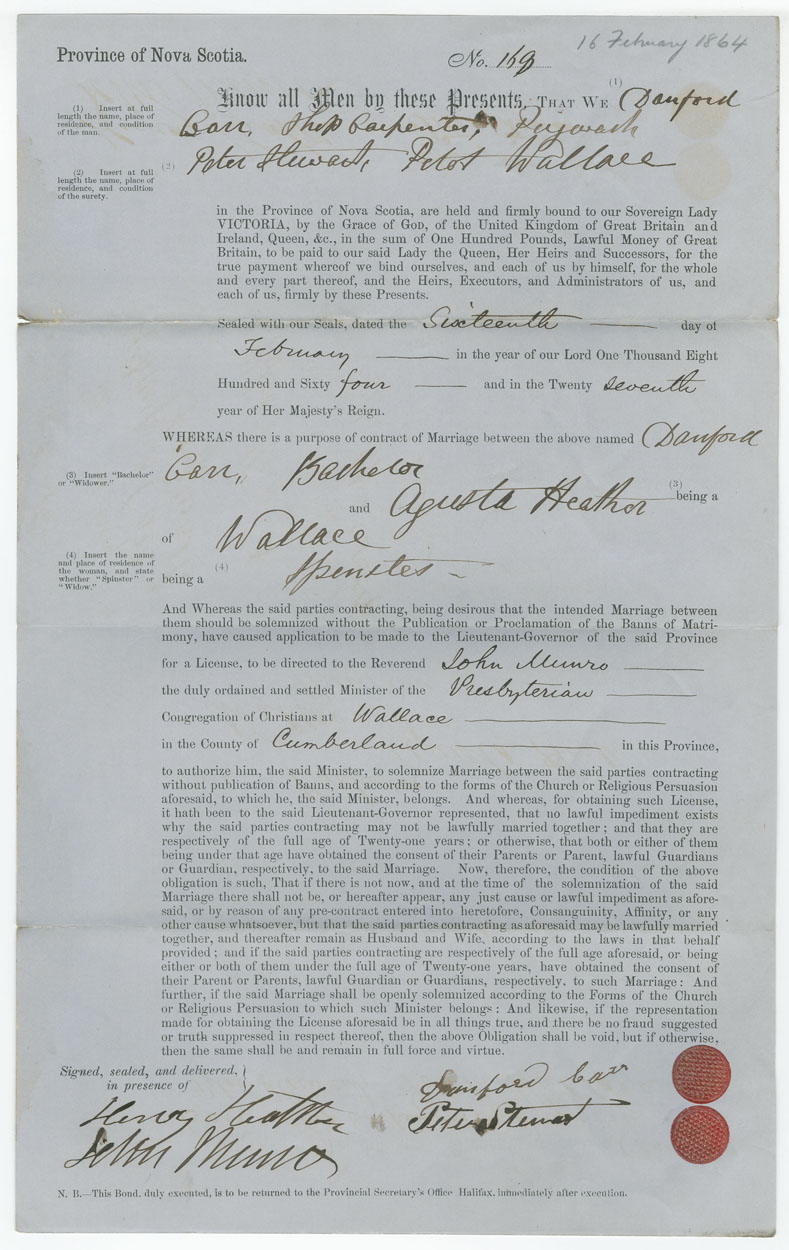 16 February 1864
Province of Nova Scotia.
No. 169
(1) Insert at full
length the name, place of
residence, and condition
of the man.
Know all Men by these Presents, THAT WE (1) Danford
Carr, Ship Carpenter, Pugwash
(2) Insert at full
length the name, place of
residence, and condition
of the surety.
(2) Peter Stewart, Pilot Wallace
in the Province of Nova Scotia, are held and firmly bound to our Sovereign Lady
VICTORIA, by the Grace of GOD, of the United Kingdom of Great Britain and
Ireland, Queen, &c., in the sum of One Hundred Pounds, Lawful Money of Great
Britain, to be paid to our said Lady the Queen, Her Heirs and Successors, for the
true payment whereof we bind ourselves, and each of us by himself, for the whole
and every part thereof, and the Heirs, Executors, and Administrators of us, and
each of us, firmly by these Presents.
Sealed with our Seals, dated the Sixteenth day of
February in the year of our Lord One Thousand Eight
Hundred and Sixty four and in the Twenty seventh
year of Her Majesty's Reign.
WHEREAS there is a purpose of contract of Marriage between the above named Danford
(3) Insert "Bachelor"
or "Widower."
Carr, Bachelor
(3) being a
and Agusta Heather
of Wallace
(4) Insert the name
and place of residence of
the woman, and state
whether "Spinster" or
"Widow."
being a (4) Spenster
And Whereas the said parties contracting, being desirous that the intended Marriage between
them should be solemnized without the Publication or Proclamation of the Banns of Matri-
mony, have caused application to be made to the Lieutenant-Governor of the said Province
for a License, to be directed to the Reverend John Munro
the duly ordained and settled Minister of the Presbyterian
Congregation of Christians at Wallace
in the County of Cumberland in this Province,
to authorize him, the said Minister, to solemnize Marriage between the said parties contracting
without publication of Banns, and according to the forms of the Church or Religious Persuasion
aforesaid, to which he, the said Minister, belongs. And whereas, for obtaining such License,
it hath been to the said Lieutenant-Governor represented, that no lawful impediment exists
why the said parties contracting may not be lawfully married together; and that they are
respectively of the full age of Twenty-one years; or otherwise, that both or either of them
being under that age have obtained the consent of their Parents or Parent, lawful Guardians
or Guardian, respectively, to the said Marriage. Now, therefore, the condition of the above
obligation is such, That if there is not now, and at the time of the solemnization of the said
Marriage there shall not be, or hereafter appear, any just cause or lawful impediment as afore-
said, or by reason of any pre-contract entered into heretofore, Consanguinity, Affinity, or any
other cause whatsoever, but that the said parties contracting as aforesaid may be lawfully married
together, and thereafter remain as Husband and Wife, according to the laws in that behalf
provided; and if the said parties contracting are respectively of the full age aforesaid, or being
either or both of them under the full age of Twenty-one years, have obtained the consent of
their Parent or Parents, lawful Guardian or Guardians, respectively, to such Marriage: And
further, if the said Marriage shall be openly solemnized according to the Forms of the Church
or Religious Persuasion to which such Minister belongs: And likewise, if the representation
made for obtaining the License aforesaid be in all things true, and there be no fraud suggested
or truth suppressed in respect thereof, then the above Obligation shall be void, but if otherwise,
then the same shall be and remain in full force and virtue.
Signed, sealed, and delivered,
in presence of
Danford Carr
Henry Heather
Peter Stewart
John Munro
N. B.—This Bond, duly executed, is to be returned to the Provincial Secretary's Office Halifax, immediately after execution.